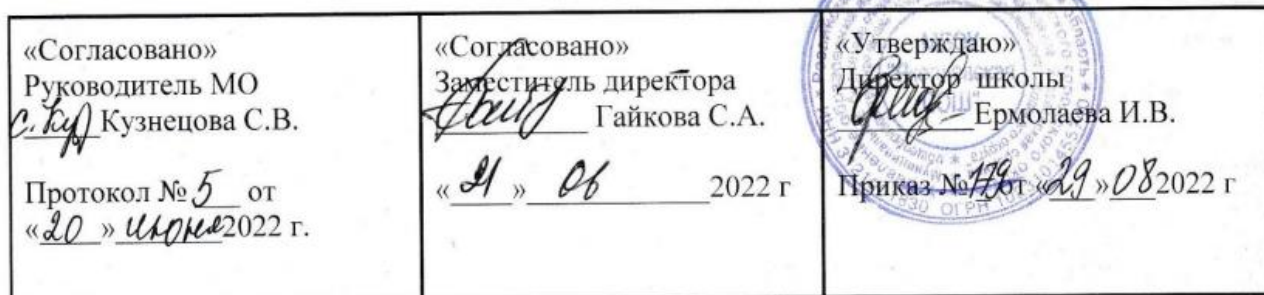 «Согласовано»
Руководитель МО
Кузнецова С.В.
Протокол № 5 от
«20» июня 2022 г.
«Согласовано»
Заместитель директора
Гайкова С.А.
«21» 06 2022 г
«Утверждаю»
Директор школы
Ермолаева И.В.
Приказ №179 от «29» 08 2022 г